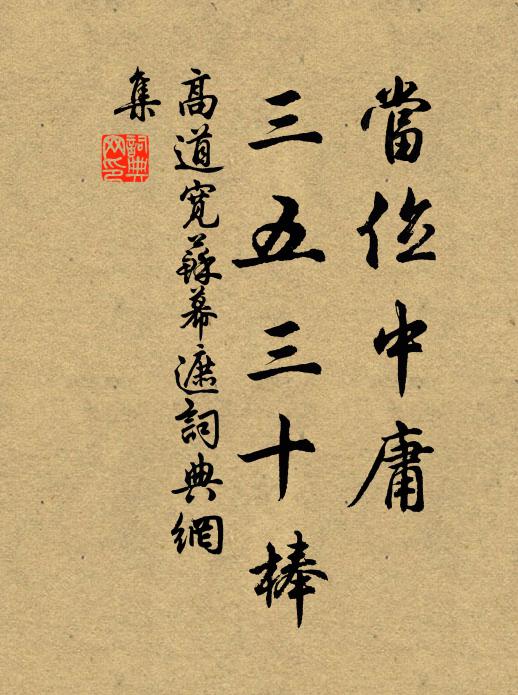 當位中庸
三五三十棒
高道寬蘇幕遮詞典網
集
詞典
网印